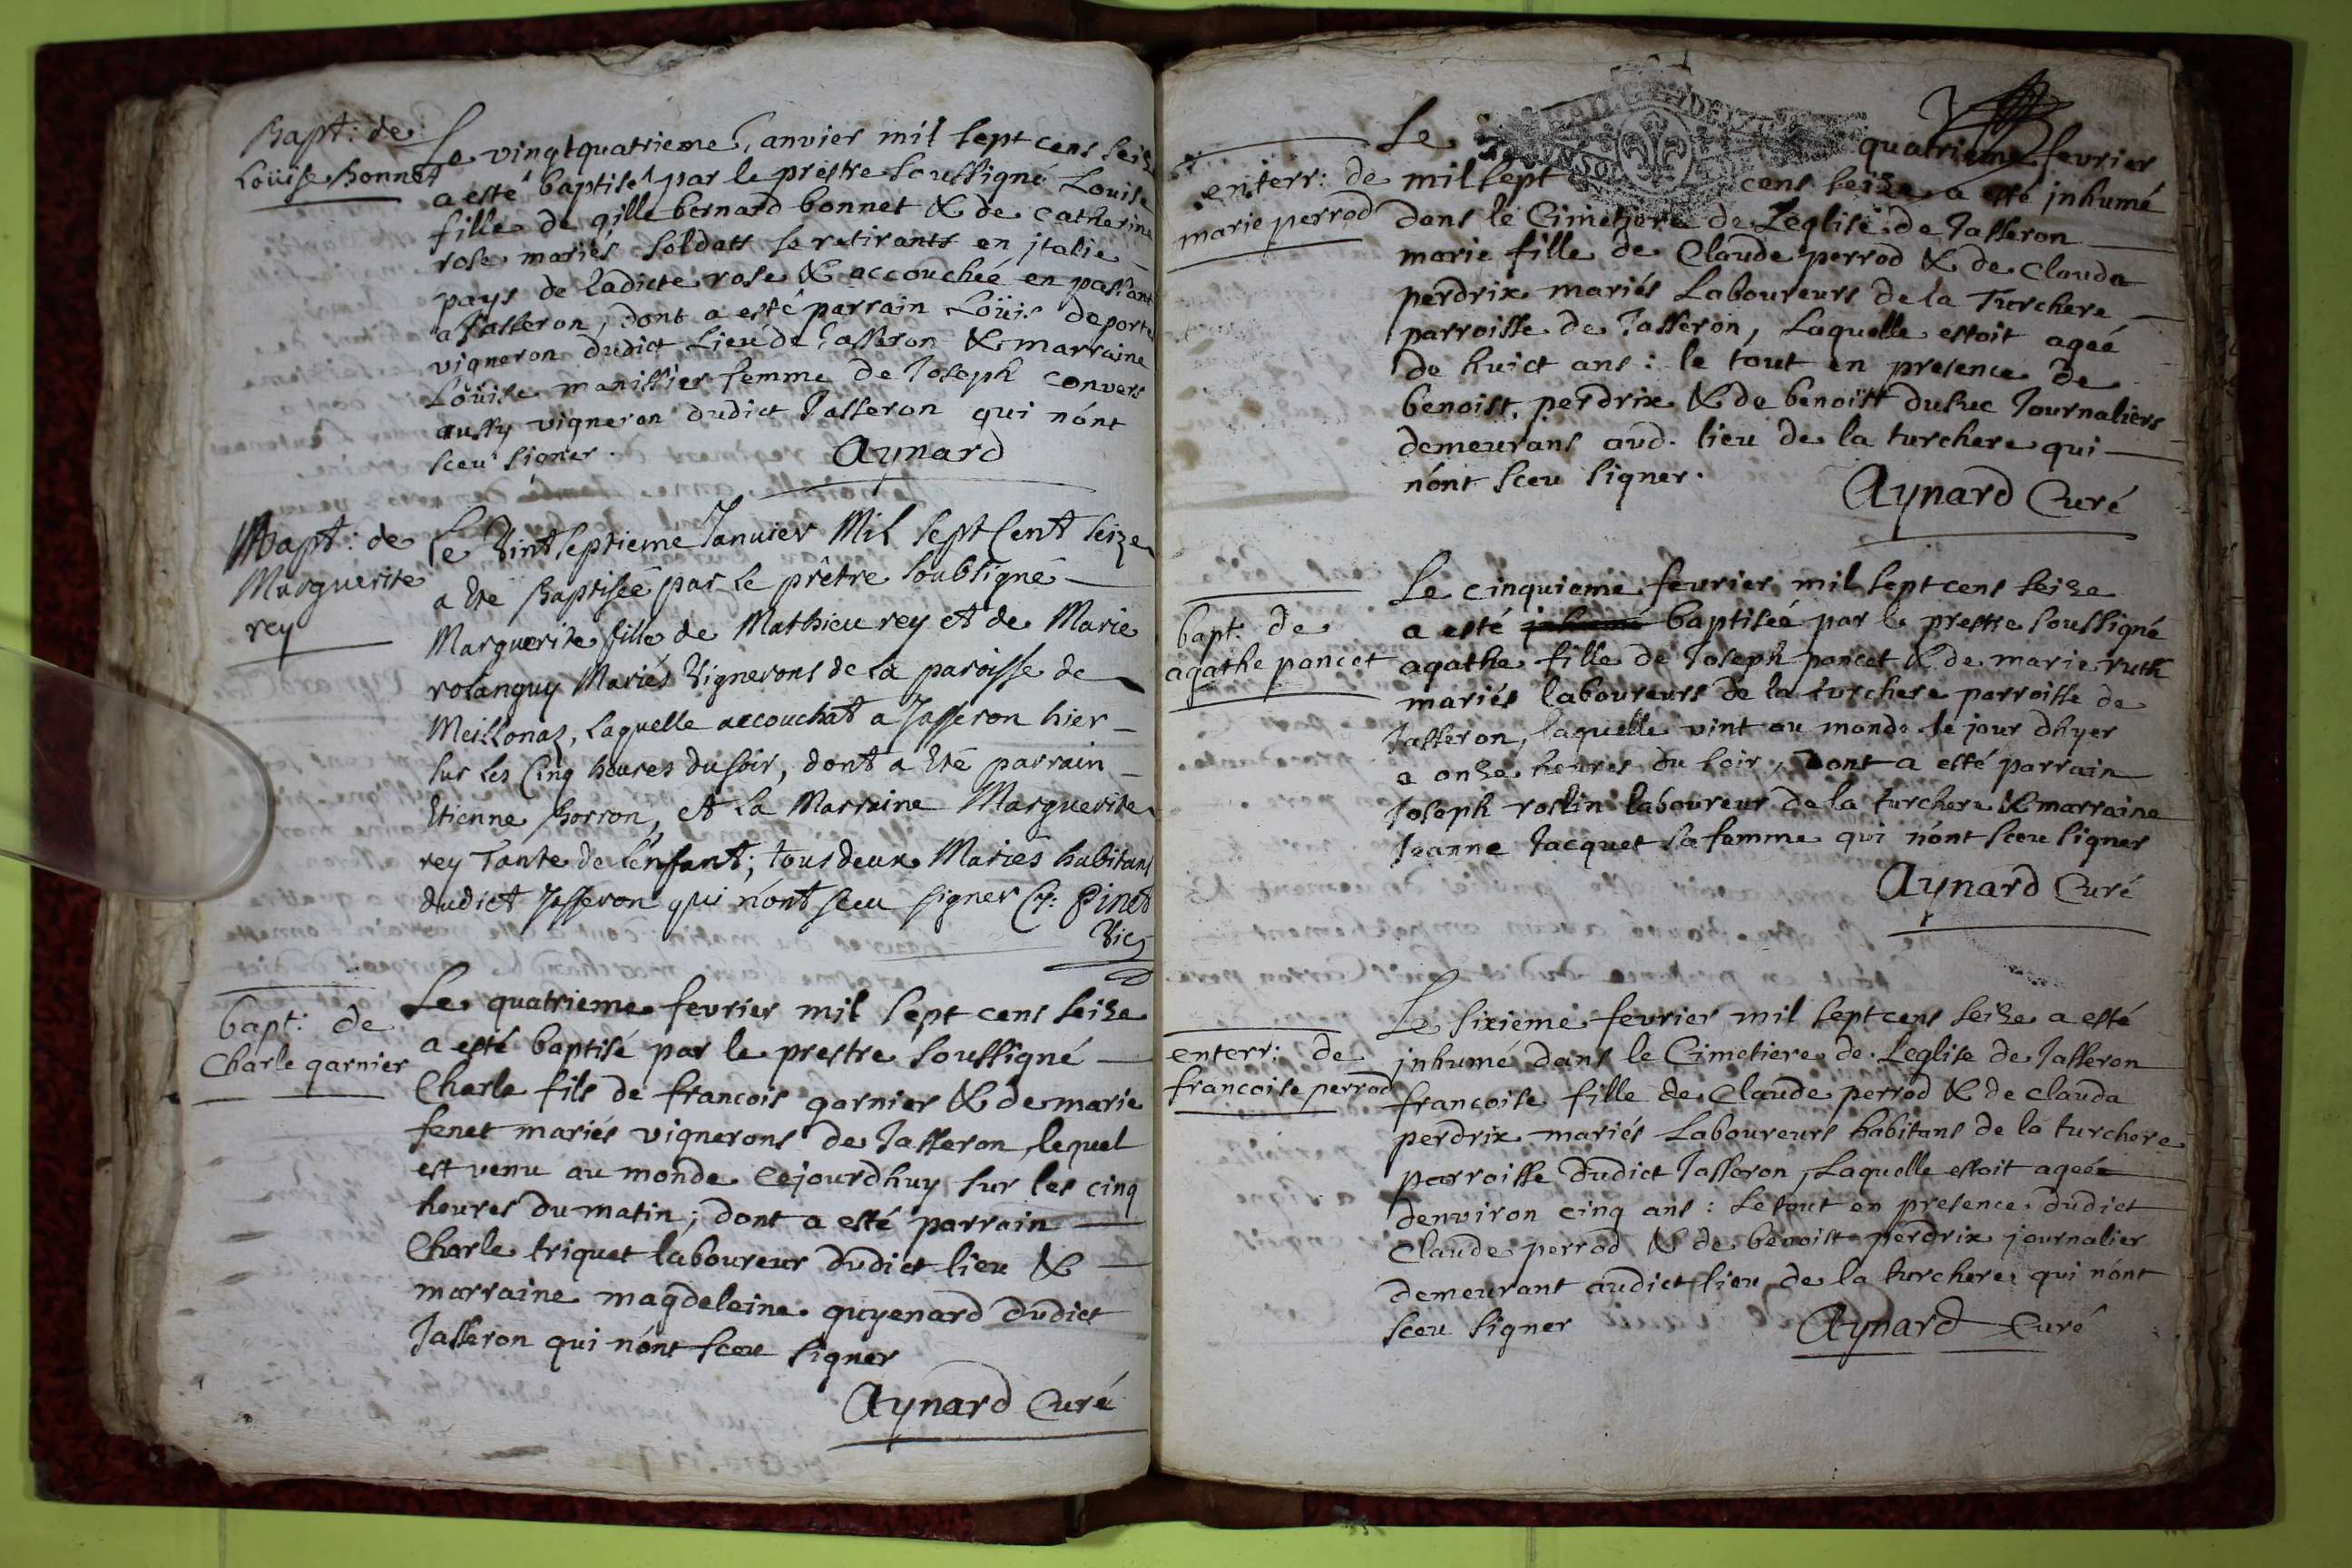 Bapt: de
Loüise bonnet
Le vingtquatrieme Janvier mil sept cens seize
a esté baptisé par le prestre soussigné Louise
fille de gille bernard bonnet & de catherine
rose mariés soldats se retirants en jtalie
pays de ladicte rose & accouchée en passant
a Jasseron, dont a esté parrain Loüis deporte
vigneron dudict Lieu de Jasseron & marraine
Loüise manissier femme de Joseph convers
aussy vigneron dudict Jasseron qui nónt
sceu signer.
Aynard
Bapt: de
Marguerite
rey
Le Vintseptieme Januier Mil sept Cent seize
a Eté Baptiseé par Le prêtre soubsigné
Marguerite fille de Mathieu rey et de Marie
rolanguy Mariés Vignerons de La paroisse de
Meillonaz, Laquelle accouchat a Jasseron hier
sur Les Cinq heures du soir, dont a Eté parrain
Etienne Borron, et La Marraine Marguerite
rey Tante de L'enfant; tous deux Mariés habitans
dudict Jasseron qui nónt sceu signer Pinet
Vic
bapt: de
Charle garnier
Le quatrieme fevrier mil sept cens seize
a esté baptisé par le prestre soussigné
Charle fils de francois garnier & de marie
fenet mariés vignerons de Jasseron, lequel
est venu au monde cejourdhuy sur les cinq
heures du matin; dont a esté parrain
Charle triquet laboureur dudict lieu &
marraine magdeleine guyenard dudict
Jasseron qui nónt sceu signer
Aynard Curé
enterr: de
marie perrod
Le quatrieme fevrier
mil sept cens seize a esté jnhumé
dans le Cimetiere de Leglise de Jasseron
marie fille de Claude perrod & de Clauda
perdrix mariés Laboureurs de la Turchere
parroisse de Jasseron, Laquelle estoit ageé
de huict ans: le tout en presence de
benoist perdrix & de benoist dusuc Journaliers
demeurans aud. lieu de la turchere qui
nónt sceu signer.
Aynard Curé
bapt: de
agathe poncet
Le cinquieme fevrier mil sept cens seize
a esté baptiseé par le prestre soussigné
agathe fille de Joseph poncet & de marie ruth
mariés laboureurs de la turchere parroisse de
Jasseron, laquelle vint au monde le jour dhyer
a onze heures du soir, Dont a esté parrain
Joseph roslin laboureur de la turchere & marraine
Jeanne Jacquet sa femme qui nónt sceu signer
Aynard Curé
enterr: de
francoise perrod
Le sixieme fevrier mil sept cens seize a esté
jnhumé dans le Cimetiere de Leglise de Jasseron
francoise fille de Claude perrod & de clauda
perdrix mariés Laboureurs habitans de la turchere
parroisse dudict Jasseron, Laquelle estoit ageée
denviron cinq ans: Le tout en presence dudict
Claude perrod & de benoist perdrix journalier
demeurant audict lieu de la turchere qui nónt
sceu signer
Aynard Curé